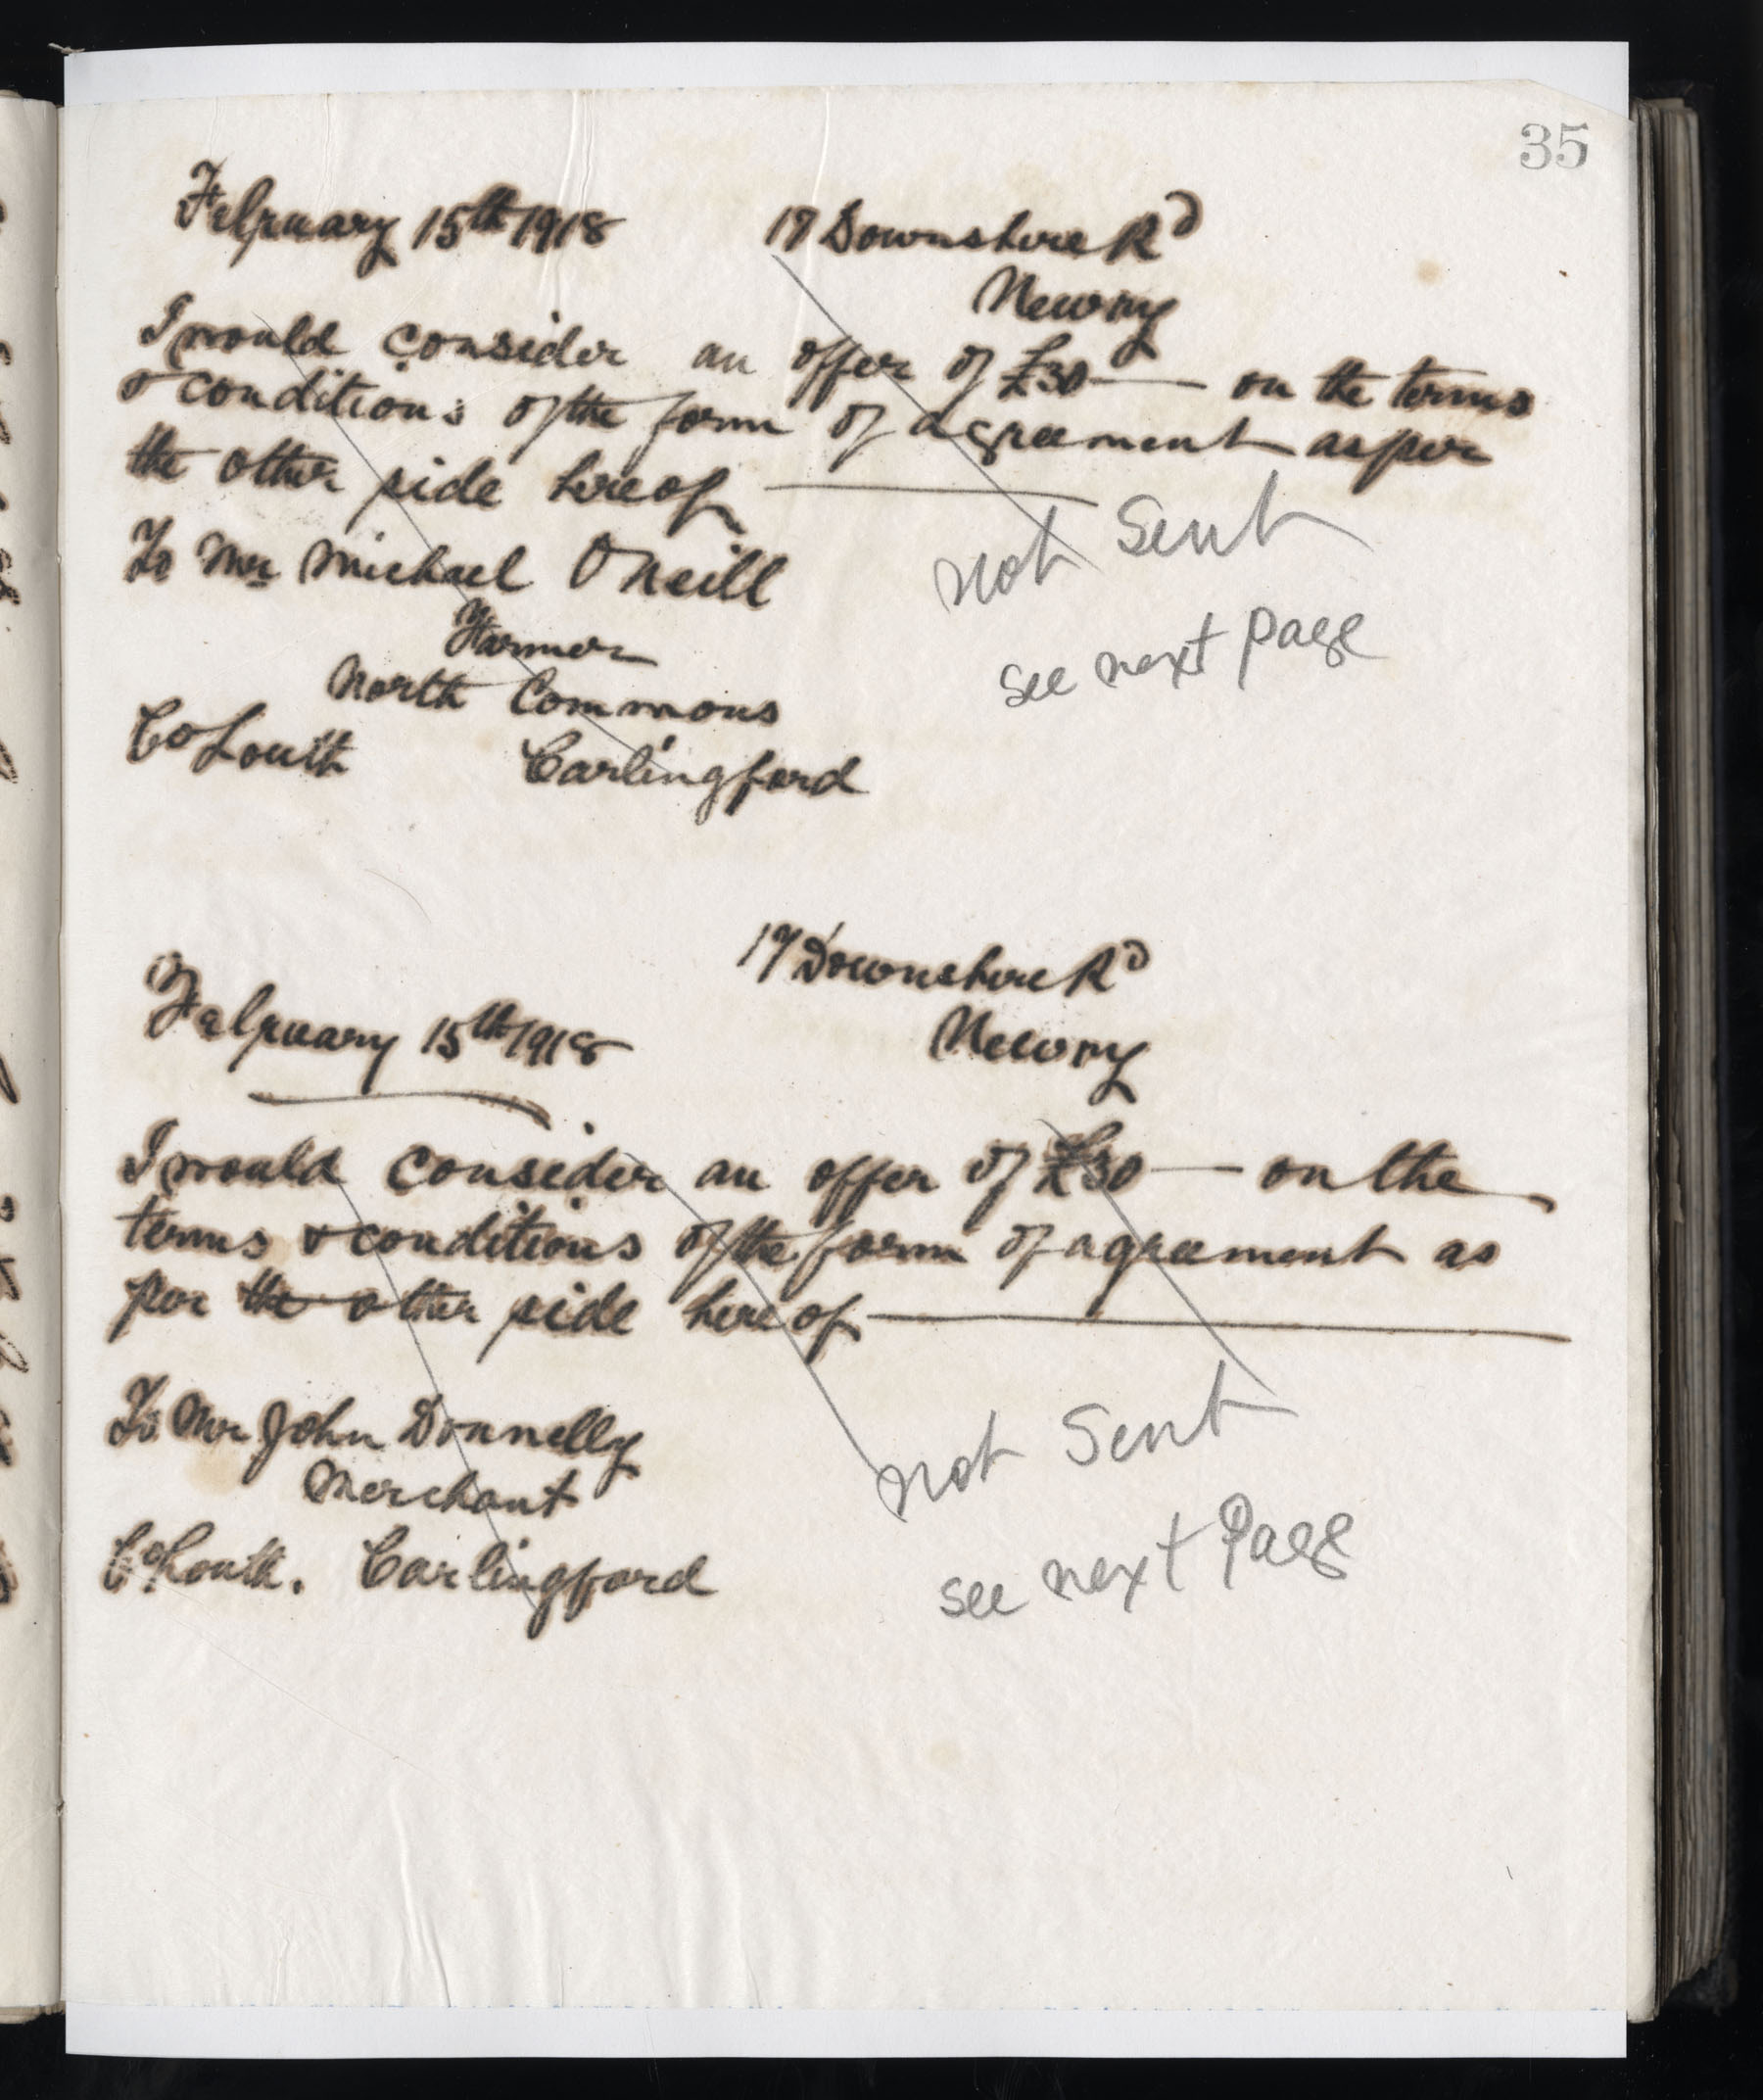 35
February 15th 1918 17 Downshire Rd
Newry
I would consider an offer of £30 — on the terms
& conditions of the form of agreement as per
the other side hereof —
To Mr Michael O'Neill
Farmer
North Commons
Co Louth Carlingford
not Sent
see next page
17 Downshire Rd
February 15th 1918
Newry
I would consider an offer of £30 — on the
terms & conditions of the form of agreement as
per the other side hereof —
To Mr John Donnelly
Merchant
Co Louth. Carlingford
not Sent
see next Page